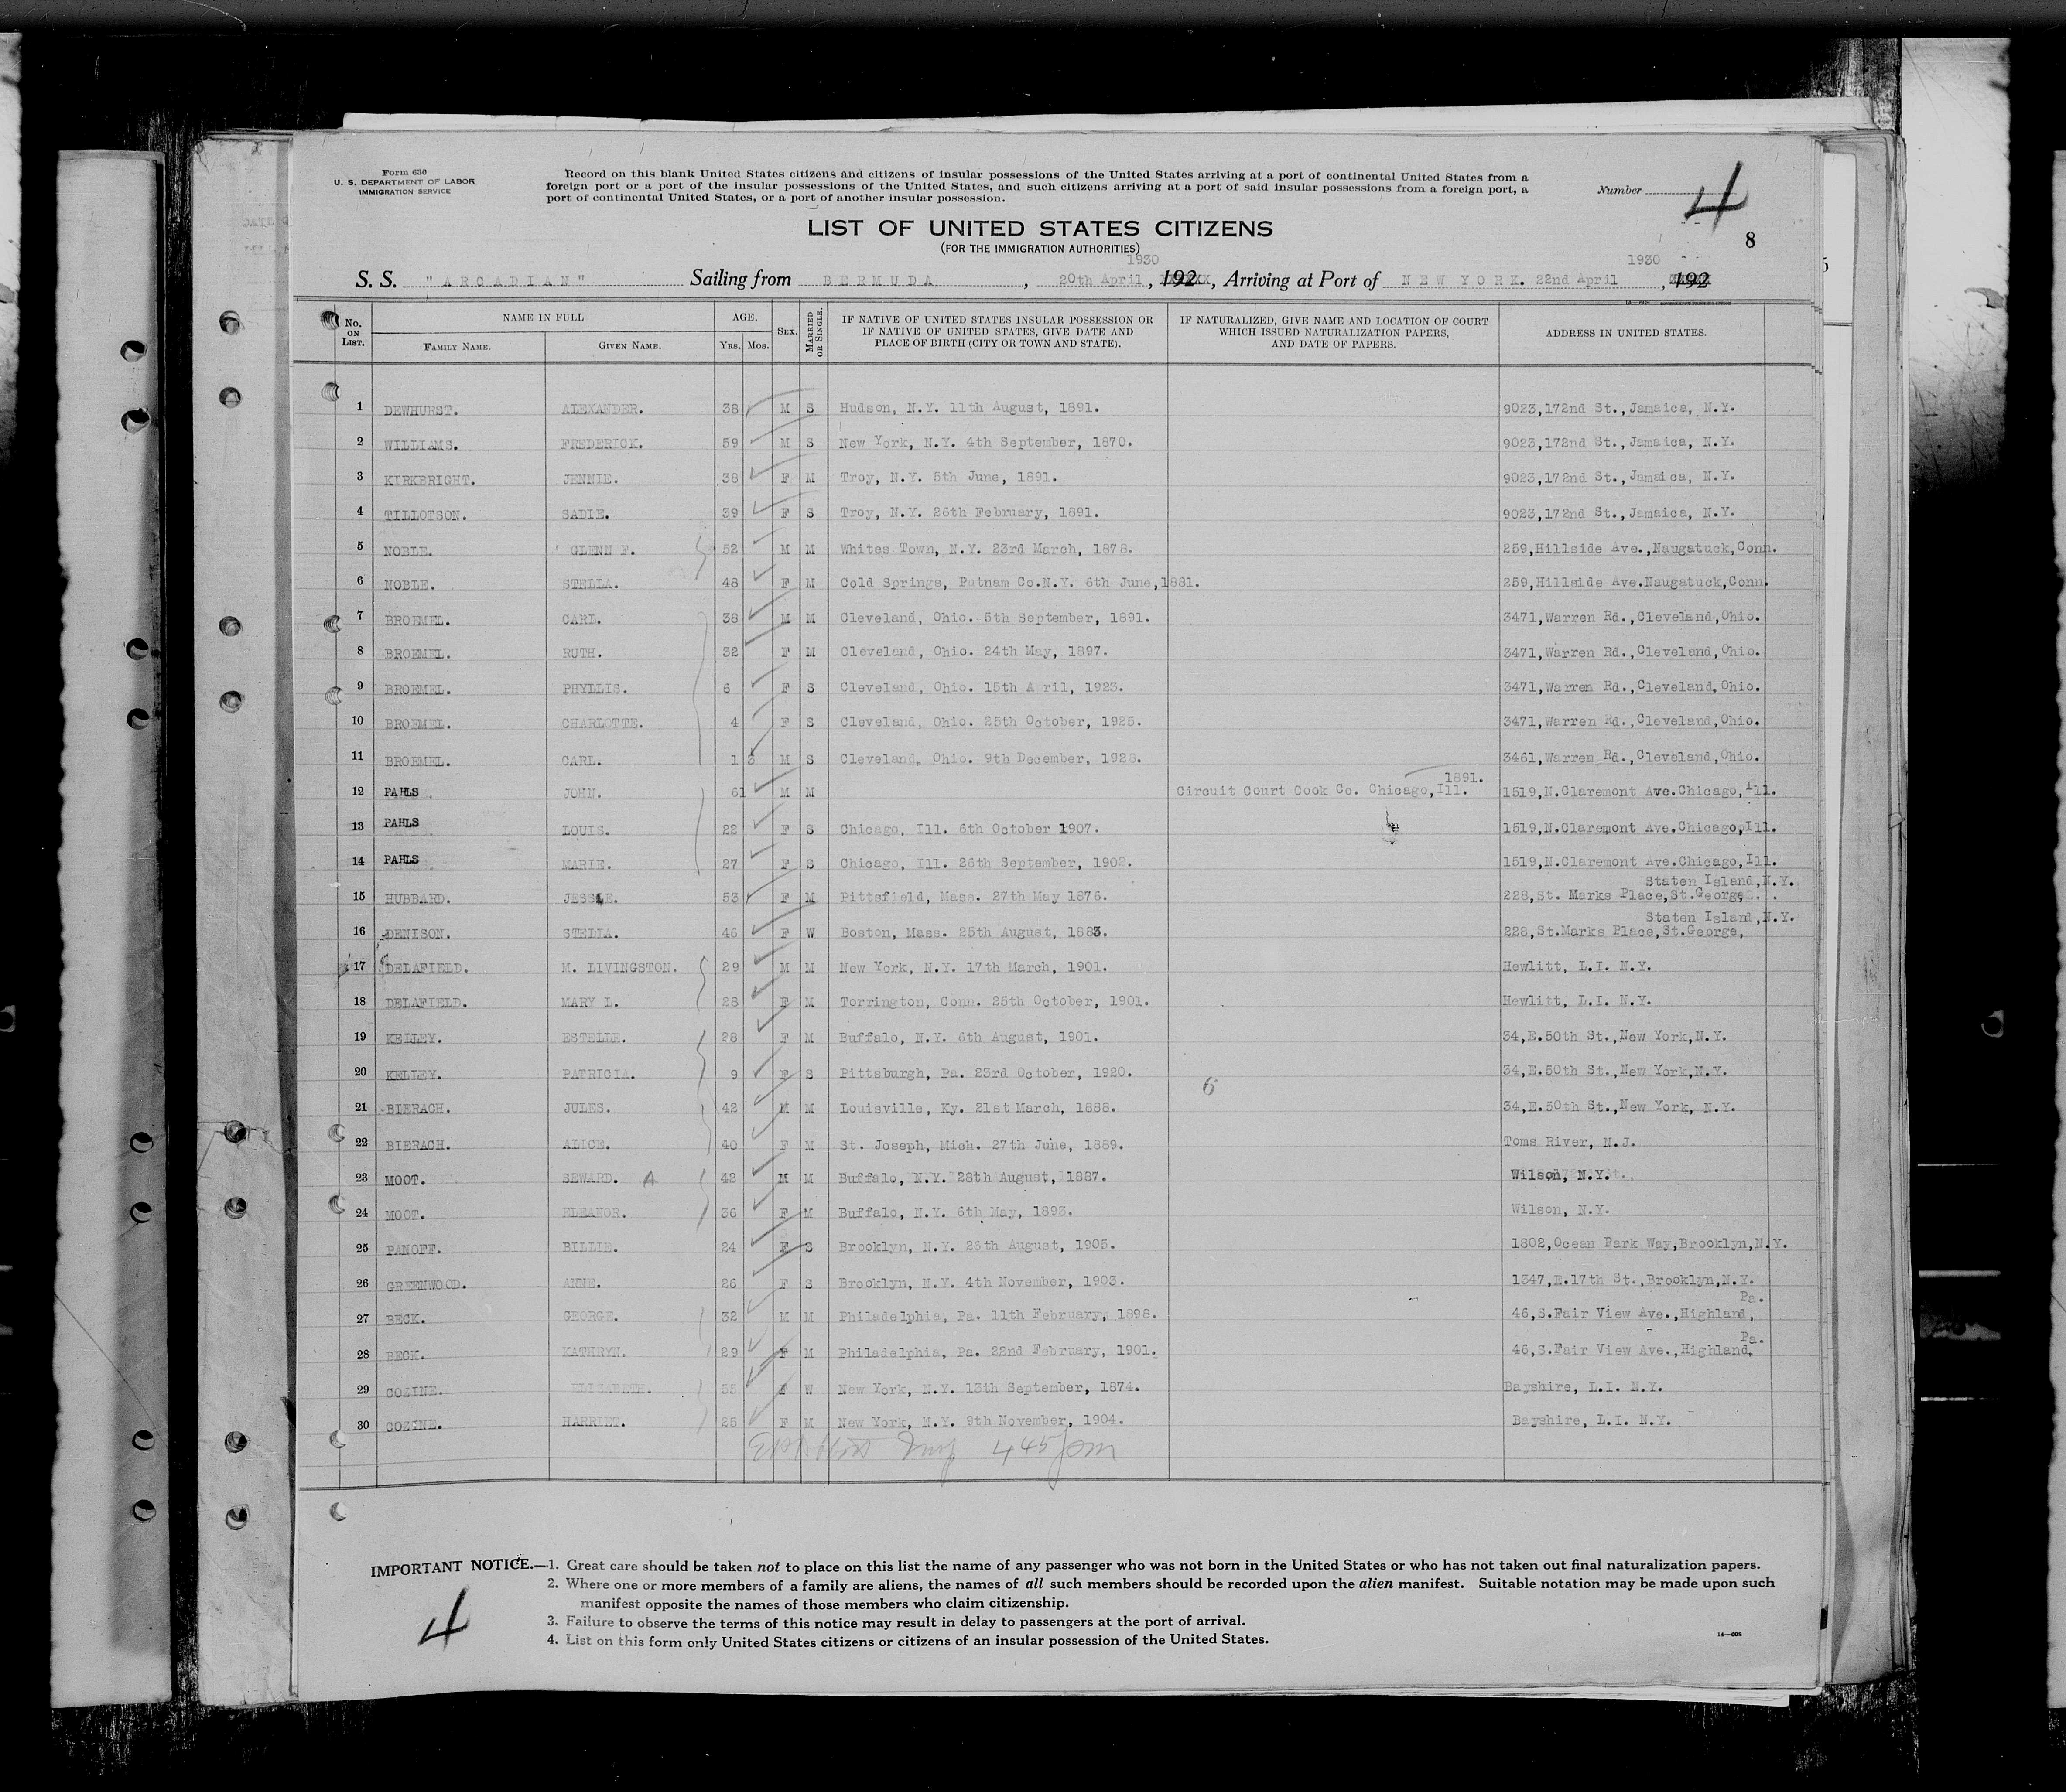 Form 630
U. S. DEPARTMENT OF LABOR
IMMIGRATION SERVICE
Record on this blank United States citizens and citizens of insular possessions of the United States arriving at a port of continental United States from a
foreign port or a port of the insular possessions of the United States, and such citizens arriving at a port of said insular possessions from a foreign port, a
port of continental United States, or a port of another insular possession.
Number 4
LIST OF UNITED STATES CITIZENS
(FOR THE IMMIGRATION AUTHORITIES)
8
1930 1930
S. S. "ARCADIAN" Sailing from BERMUDA, 20th April, 192, Arriving at Port of NEW YORK. 22nd April, 192
No. ON LIST. NAME IN FULL AGE. SEX. MARRIED OR SINGLE. IF NATIVE OF UNITED STATES INSULAR POSSESSION OR IF NATIVE OF UNITED STATES, GIVE DATE AND PLACE OF BIRTH (CITY OR TOWN AND STATE). IF NATURALIZED, GIVE NAME AND LOCATION OF COURT WHICH ISSUED NATURALIZATION PAPERS, AND DATE OF PAPERS. ADDRESS IN UNITED STATES.
FAMILY NAME. GIVEN NAME. YRS. MOS.
1 DEWHURST. ALEXANDER. 38 M S Hudson, N.Y. 11th August, 1891. 9023,172nd St.,Jamaica, N.Y.
2 WILLIAMS. FREDERICK. 59 M S New York, N.Y. 4th September, 1870. 9023,172nd St.,Jamaica, N.Y.
3 KIRKBRIGHT. JENNIE. 38 F M Troy, N.Y. 5th June, 1891. 9023,172nd St.,Jamaica, N.Y.
4 TILLOTSON. SADIE. 39 F S Troy, N.Y. 26th February, 1891. 9023,172nd St.,Jamaica, N.Y.
5 NOBLE. GLENN F. 52 M M Whites Town, N.Y. 23rd March, 1878. 259,Hillside Ave.,Naugatuck,Conn.
6 NOBLE. STELLA. 48 F M Cold Springs, Putnam Co.N.Y. 6th June,1881. 259,Hillside Ave.Naugatuck,Conn.
7 BROEMEL. CARL. 38 M M Cleveland, Ohio. 5th September, 1891. 3471,Warren Rd.,Cleveland,Ohio.
8 BROEMEL. RUTH. 32 F M Cleveland, Ohio. 24th May, 1897. 3471,Warren Rd.,Cleveland,Ohio.
9 BROEMEL. PHYLLIS. 6 F S Cleveland, Ohio. 15th April, 1923. 3471,Warren Rd.,Cleveland,Ohio.
10 BROEMEL. CHARLOTTE. 4 F S Cleveland, Ohio. 25th October, 1925. 3471,Warren Rd.,Cleveland,Ohio.
11 BROEMEL. CARL. 1 3 M S Cleveland, Ohio. 9th December, 1928. 3461,Warren Rd.,Cleveland,Ohio.
1891.
12 PAHLS JOHN. 61 M M Circuit Court Cook Co. Chicago,Ill. 1519,N.Claremont Ave.Chicago,Ill.
13 PAHLS LOUIS. 22 F S Chicago, Ill. 6th October 1907. 1519,N.Claremont Ave.Chicago,Ill.
14 PAHLS MARIE. 27 F S Chicago, Ill. 26th September, 1902. 1519,N.Claremont Ave.Chicago,Ill.
Staten Island,N.Y.
15 HUBBARD. JESSIE. 53 F M Pittsfield, Mass. 27th May 1876. 228,St. Marks Place,St.George,
Staten Island,N.Y.
16 DENISON. STELLA. 46 F W Boston, Mass. 25th August, 1883. 228,St.Marks Place,St.George,
17 DELAFIELD. M. LIVINGSTON. 29 M M New York, N.Y. 17th March, 1901. Hewlitt, L.I. N.Y.
18 DELAFIELD. MARY L. 28 F M Torrington, Conn. 25th October, 1901. Hewlitt, L.I. N.Y.
19 KELLEY. ESTELLE. 28 F M Buffalo, N.Y. 6th August, 1901. 34,E.50th St.,New York,N.Y.
20 KELLEY. PATRICIA. 9 F S Pittsburgh, Pa. 23rd October, 1920. 34,E.50th St.,New York,N.Y.
6
21 BIERACH. JULES. 42 M M Louisville, Ky. 21st March, 1888. 34,E.50th St.,New York, N.Y.
22 BIERACH. ALICE. 40 F M St. Joseph, Mich. 27th June, 1889. Toms River, N.J.
23 MOOT. SEWARD. A 42 M M Buffalo, N.Y. 28th August, 1887. Wilson, N.Y.
24 MOOT. ELEANOR. 36 F M Buffalo, N.Y. 6th May, 1893. Wilson, N.Y.
25 PANOFF. BILLIE. 24 F S Brooklyn, N.Y. 26th August, 1905. 1802,Ocean Park Way,Brooklyn,N.Y.
26 GREENWOOD. ANNE. 26 F S Brooklyn, N.Y. 4th November, 1903. 1347,E.17th St.,Brooklyn,N.Y.
Pa.
27 BECK. GEORGE. 32 M M Philadelphia, Pa. 11th February, 1898. 46,S.Fair View Ave.,Highland,
Pa.
28 BECK. KATHRYN. 29 F M Philadelphia, Pa. 22nd February, 1901. 46,S.Fair View Ave.,Highland,
29 COZINE. ELIZABETH. 55 F W New York, N.Y. 13th September, 1874. Bayshire, L.I. N.Y.
30 COZINE. HARRIET. 25 F M New York, N.Y. 9th November, 1904. Bayshire, L.I. N.Y.
IMPORTANT NOTICE.—1. Great care should be taken not to place on this list the name of any passenger who was not born in the United States or who has not taken out final naturalization papers.
2. Where one or more members of a family are aliens, the names of all such members should be recorded upon the alien manifest. Suitable notation may be made upon such
manifest opposite the names of those members who claim citizenship.
3. Failure to observe the terms of this notice may result in delay to passengers at the port of arrival.
4. List on this form only United States citizens or citizens of an insular possession of the United States.
4